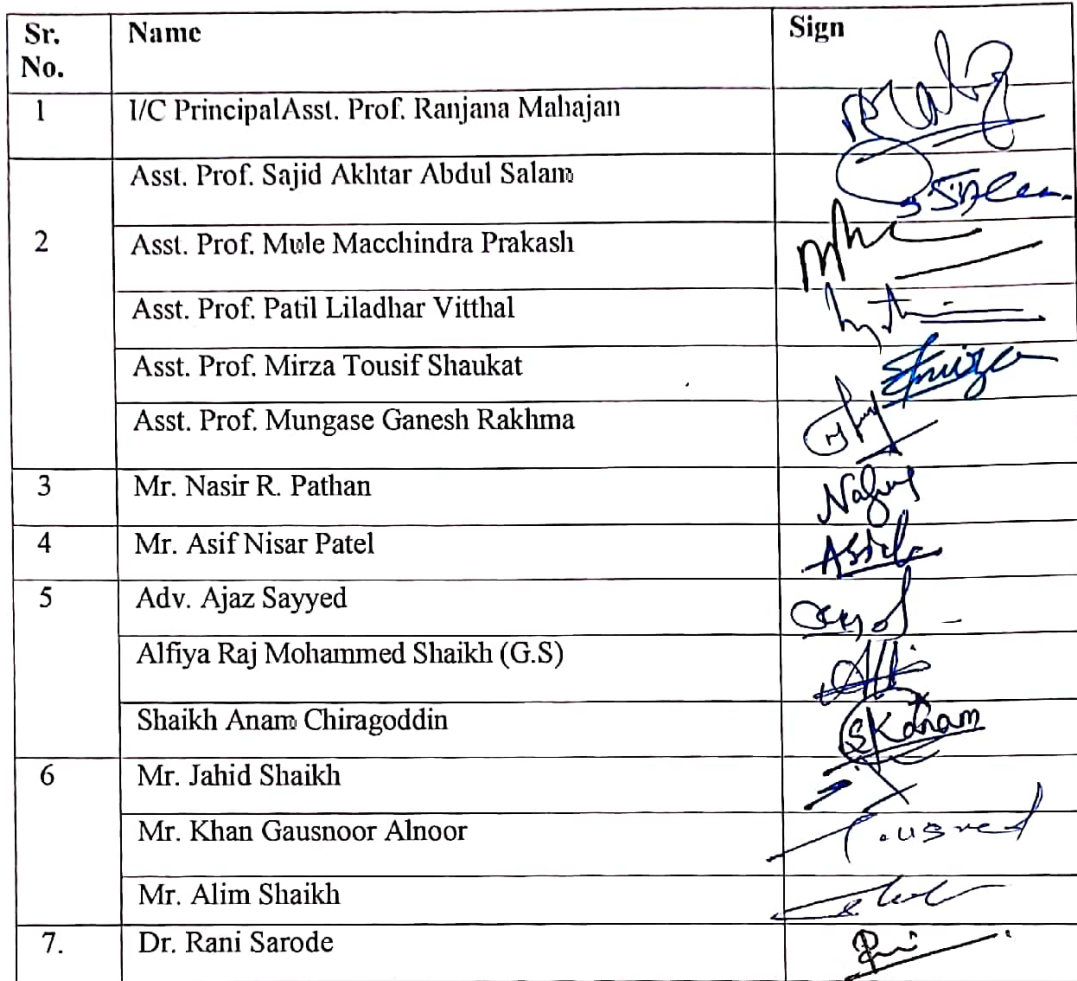 Sr. No. Name Sign
1 I/C PrincipalAsst. Prof. Ranjana Mahajan
Asst. Prof. Sajid Akhtar Abdul Salam
2 Asst. Prof. Mule Macchindra Prakash
Asst. Prof. Patil Liladhar Vitthal
Asst. Prof. Mirza Tousif Shaukat
Asst. Prof. Mungase Ganesh Rakhma
3 Mr. Nasir R. Pathan
4 Mr. Asif Nisar Patel
5 Adv. Ajaz Sayyed
Alfiya Raj Mohammed Shaikh (G.S)
Shaikh Anam Chiragoddin
6 Mr. Jahid Shaikh
Mr. Khan Gausnoor Alnoor
Mr. Alim Shaikh
7. Dr. Rani Sarode